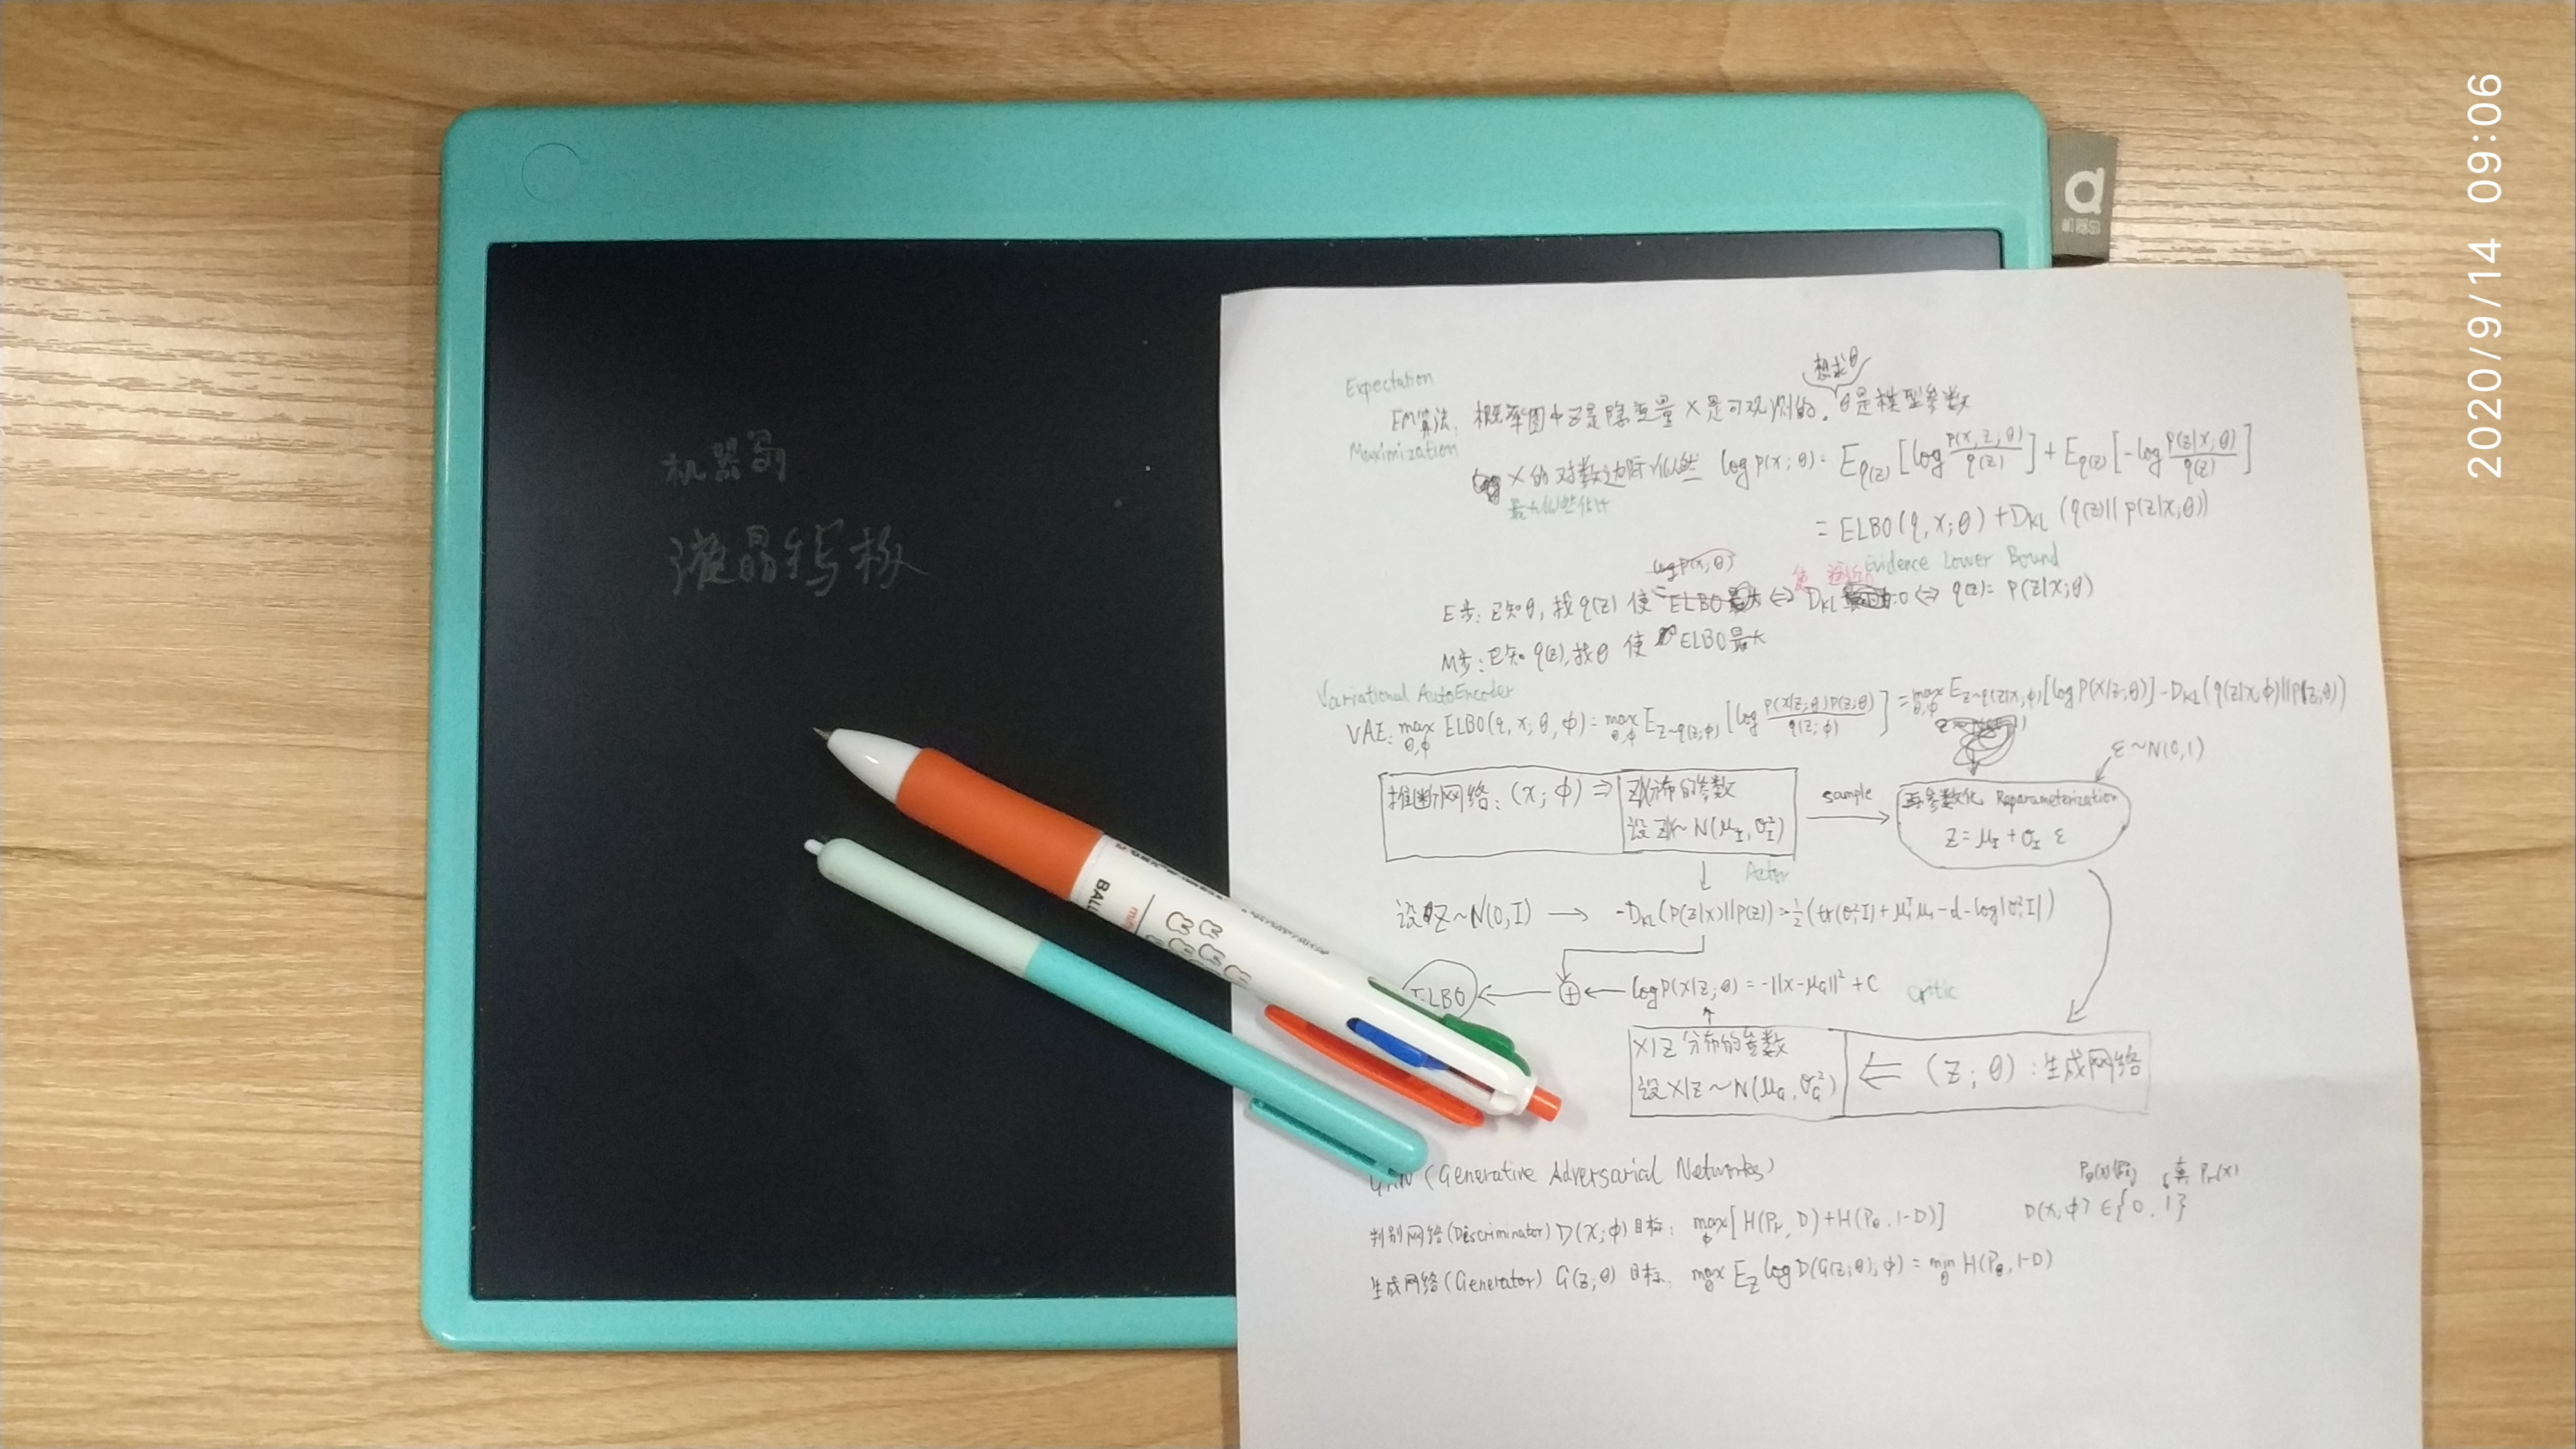 2020/9/14 09:06
a
机器岛
液晶写板
BALL
Expectation
想求θ
EM算法: 概率图中Z是隐变量 X是可观测的. θ是模型参数
Maximization
X的对数边际似然 log p(x;θ) = E_q(z)[log p(x,z;θ)/q(z)] + E_q(z)[-log p(z|x,θ)/q(z)]
最大似然估计
= ELBO(q,x;θ) + D_KL(q(z)||p(z|x,θ))
Evidence Lower Bound
log p(x;θ)
使 逼近
E步: 已知θ, 找q(z) 使 = ELBO ⇔ D_KL =0 ⇔ q(z)= p(z|x;θ)
M步: 已知q(z), 找θ 使 ELBO最大
Variational AutoEncoder
VAE: max θ,φ ELBO(q,x;θ,φ) = max θ,φ E_z~q(z;φ)[log p(x|z;θ)p(z;θ)/q(z;φ)] = max θ,φ E_z~q(z|x,φ)[log p(x|z,θ)] - D_KL(q(z|x,φ)||p(z;θ))
ε~N(0,1)
推断网络: (x;φ) ⇒
分布的参数
设 ~ N(μ_I, σ_I²)
sample
再参数化 Reparameterization
Z = μ_I + σ_I·ε
Actor
设Z~N(0,I) → -D_KL(p(z|x)||p(z)) = ½(tr(σ²I)+μᵀμ-d-log|σ²I|)
ELBO ← ⊕ ← log p(x|z;θ) = -||x-μ_G||² + C
critic
X|Z 分布的参数
设X|Z~N(μ_G, σ_G²)
⇐ (z;θ): 生成网络
GAN (Generative Adversarial Networks)
P_θ(x) 真 P_r(x)
判别网络(Discriminator) D(x;φ) 目标: max φ [H(P_r, D)+H(P_θ, 1-D)]
D(x,φ) ∈ {0, 1}
生成网络(Generator) G(z;θ) 目标: max θ E_z log D(G(z;θ),φ) = min θ H(P_θ, 1-D)